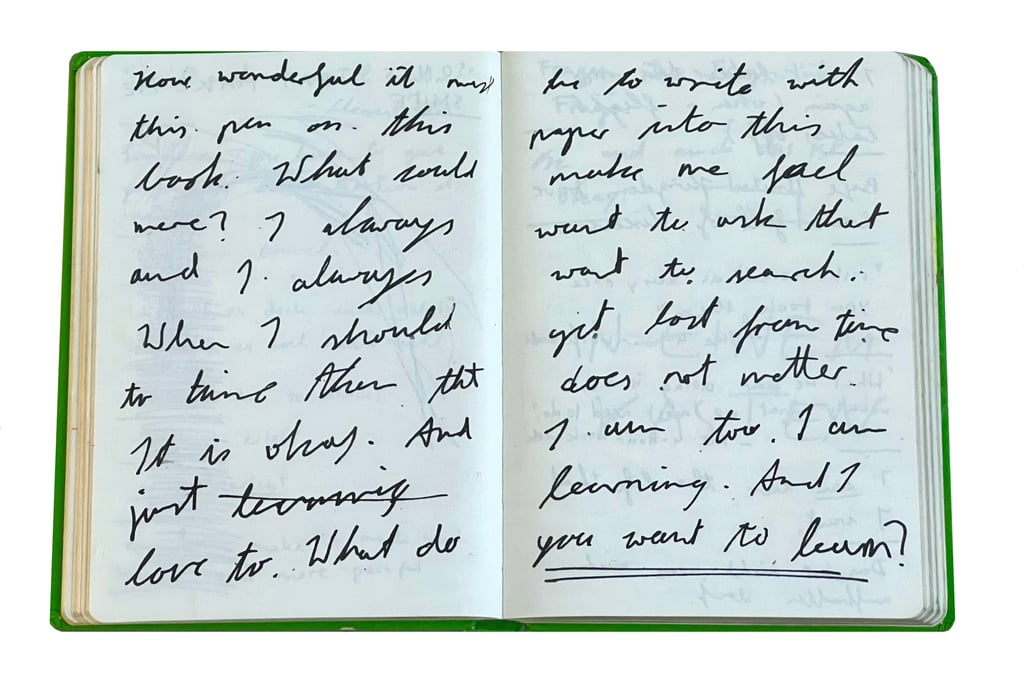 How wonderful it must be to write with
this pen on this paper into this
book. What could make me feel
more? I always want to ask that
and I always want to search.
When I should get lost from time
to time then tht does not matter.
It is okay. And I am too. I am
just learning learning. And I
love to. What do you want to learn?